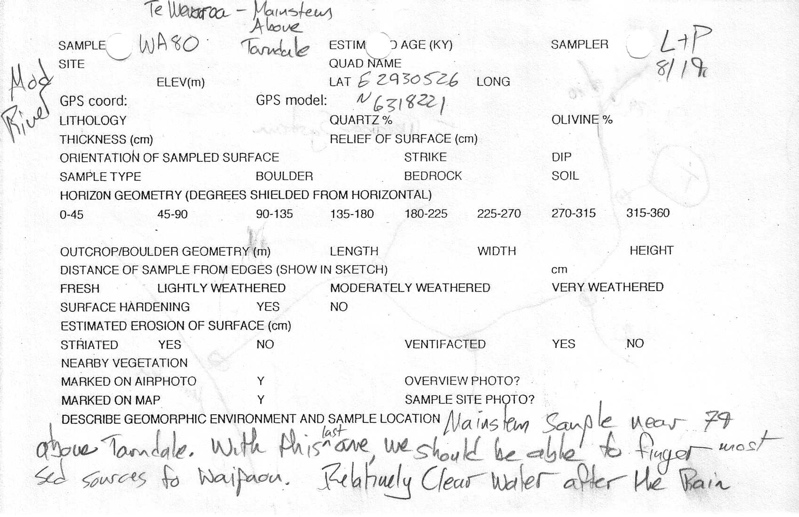 Te Weraroa - Mainstem
Above
Tarndale
Mod
River
SAMPLE WA80 ESTIM D AGE (KY) SAMPLER L+P
8/19
SITE QUAD NAME
ELEV(m) LAT E 2930526 LONG
GPS coord: GPS model: N 6318221
LITHOLOGY QUARTZ % OLIVINE %
THICKNESS (cm) RELIEF OF SURFACE (cm)
ORIENTATION OF SAMPLED SURFACE STRIKE DIP
SAMPLE TYPE BOULDER BEDROCK SOIL
HORIZ0N GEOMETRY (DEGREES SHIELDED FROM HORIZONTAL)
0-45 45-90 90-135 135-180 180-225 225-270 270-315 315-360
OUTCROP/BOULDER GEOMETRY (m) LENGTH WIDTH HEIGHT
DISTANCE OF SAMPLE FROM EDGES (SHOW IN SKETCH) cm
FRESH LIGHTLY WEATHERED MODERATELY WEATHERED VERY WEATHERED
SURFACE HARDENING YES NO
ESTIMATED EROSION OF SURFACE (cm)
STRIATED YES NO VENTIFACTED YES NO
NEARBY VEGETATION
MARKED ON AIRPHOTO Y OVERVIEW PHOTO?
MARKED ON MAP Y SAMPLE SITE PHOTO?
DESCRIBE GEOMORPHIC ENVIRONMENT AND SAMPLE LOCATION Mainstem Sample near 79
above Tarndale. With this last one, we should be able to finger most
sed sources to Waipaoa. Relatively Clear Water after the Rain